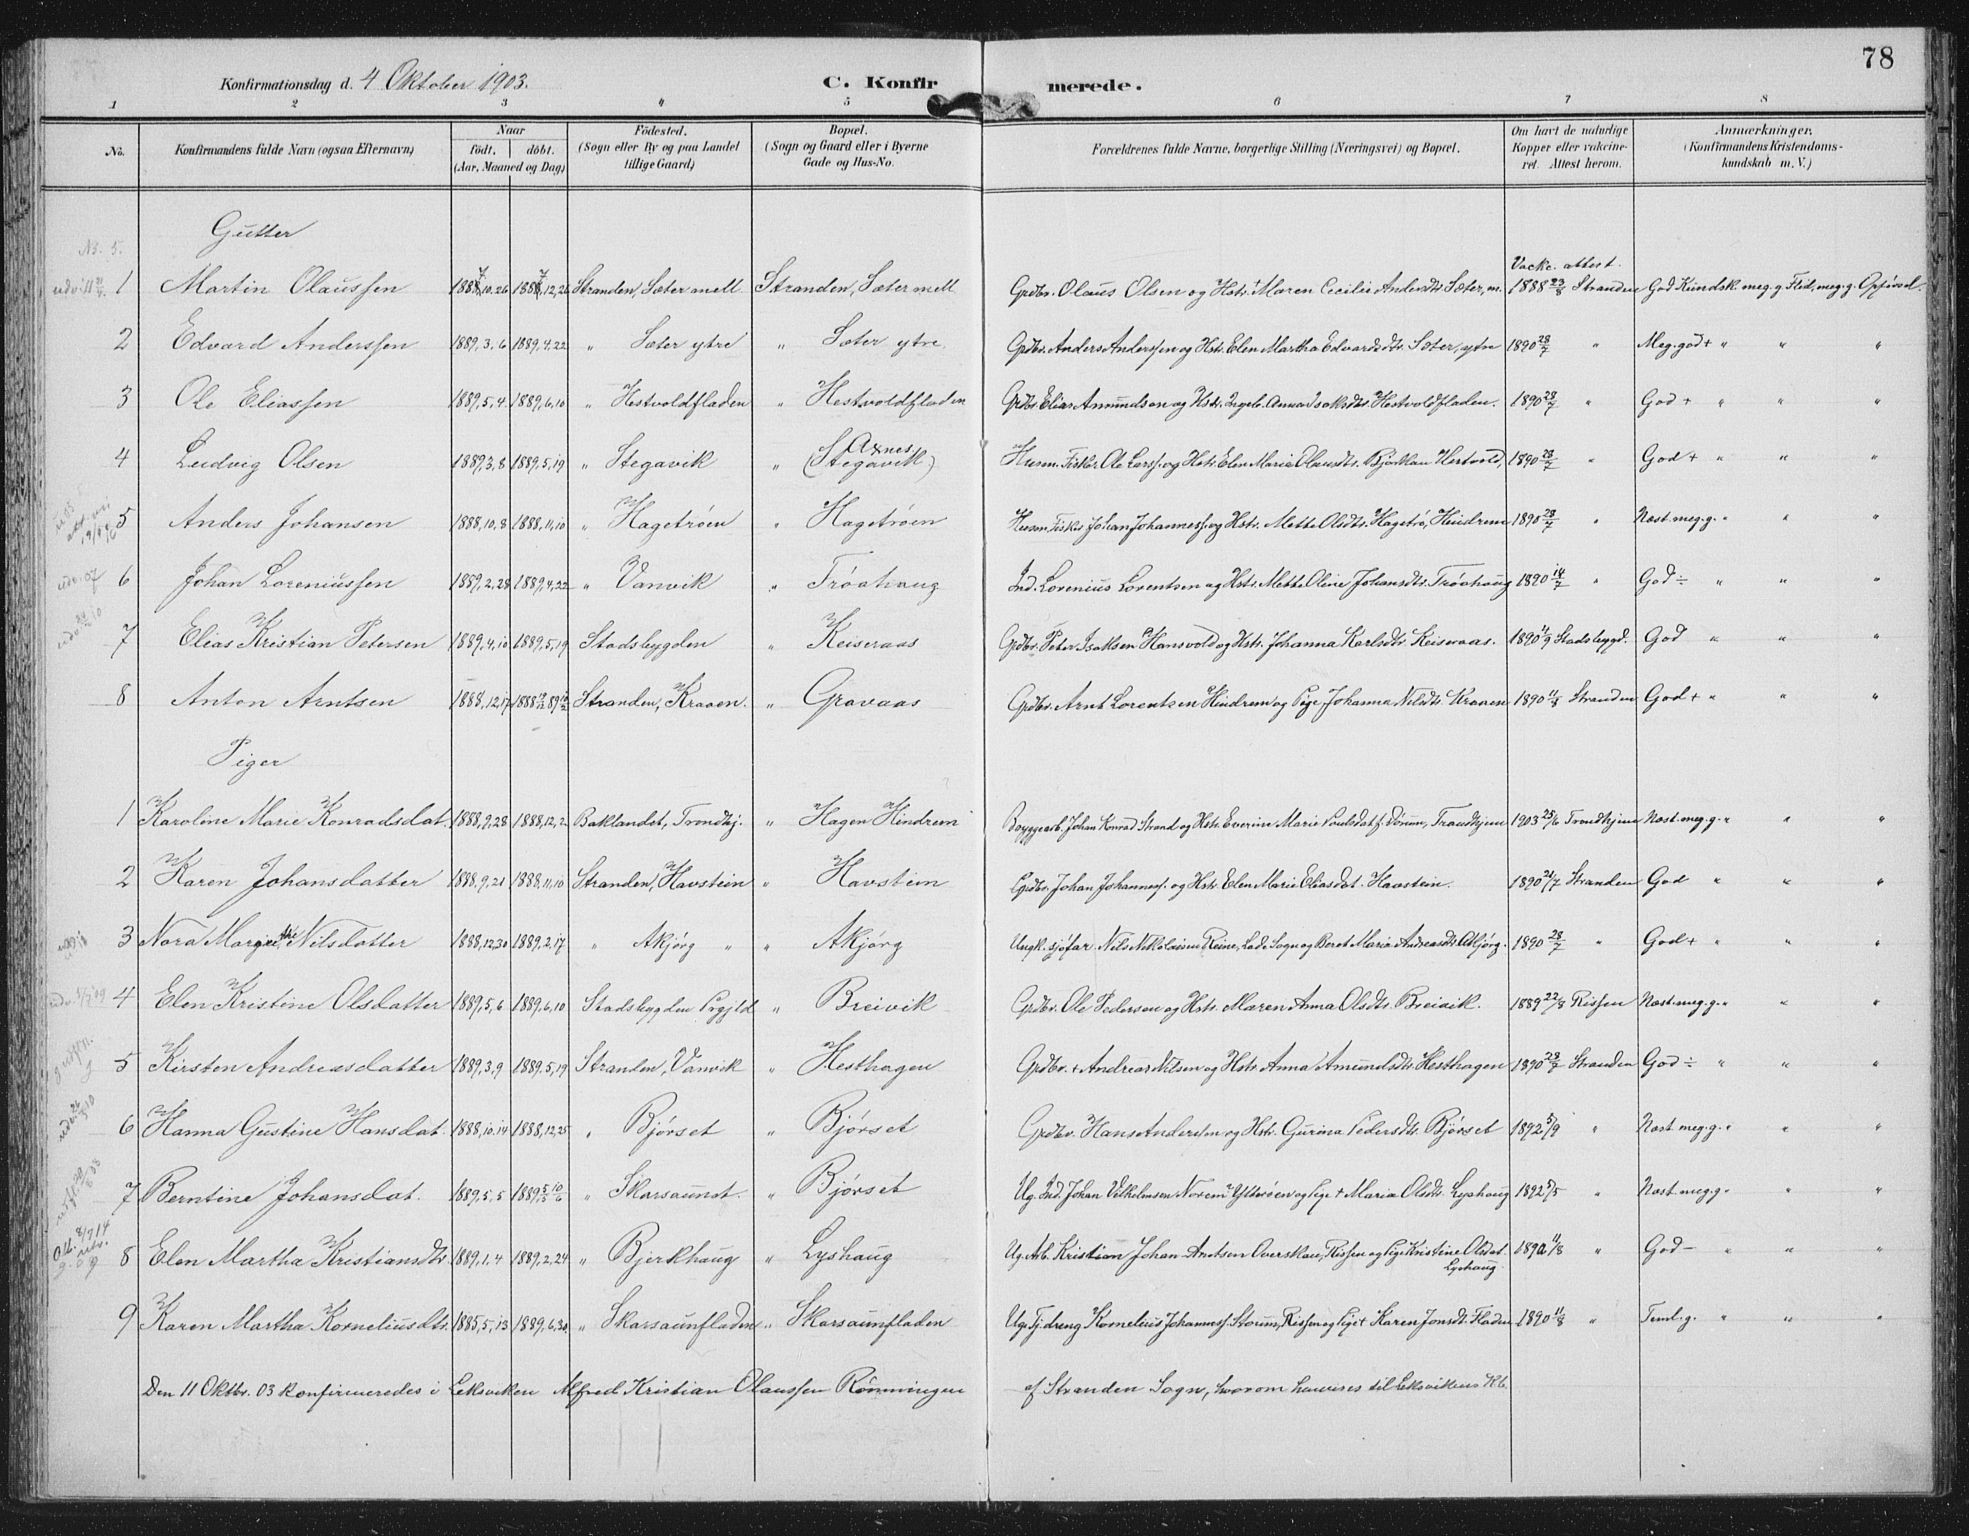 78
Konfirmationsdag d. 4 Oktober 1903. C. Konfir merede.
1 2 3 4 5 6 7 8
No. Konfirmandens fulde Navn (ogsaa Efternavn) Naar født, døbt. (Aar, Maaned og Dag) Fødested. (Sogn eller By og paa Landet tillige Gaard) Bopæl. (Sogn og Gaard eller i Byerne Gade og Hus-No. Forældrenes fulde Navne, borgerlige Stilling (Næringsvei) og Bopæl. Om havt de naturlige Kopper eller vakcineret. Attest herom. Anmærkninger. (Konfirmandens Kristendomskundskab m. V.)
Gutter
No. 5.
Vackc. attest.
1 Martin Olaussen 1887,10,26 1887,12,26 Stranden, Sæter mell Stranden, Sæter mell Grdbr. Olaus Olsen og Hstr. Maren Cecilie Andersdtr. Sæter, m. 1888 23/8 Stranden God Kundsk. meg. g Flid, meg. g. Opførsel.
2 Edvard Anderssen 1889,3,6 1889,4,22 " Sæter ytre " Sæter ytre Grdbr. Anders Anderssen og Hstr. Elen Martha Edvardsdtr. Sæter, ytre 1890 28/7 " Meg. god + " " "
3 Ole Eliassen 1889,5,4 1889,6,10 " Hestvoldfladen " Hestvoldfladen Grdbr. Elias Amundsen og Hstr. Ingeb. Anna Isaksdtr. Hestvoldfladen. 1890 28/7 " God + " " "
4 Ludvig Olsen 1889,3,8 1889,5,19 " Stegavik " Axnes (Stegavik) Husm. Fisker Ole Larss. og Hstr. Elen Marie Olausdtr. Bjørklau Hestvold, 1890 28/7 " God + " " "
5 Anders Johansen 1888,10,8 1888,11,10 " Hagetrøen " Hagetrøen Husm. Fisker Johan Johanness. og Hstr. Mette Olsdtr. Hagetrø, Hindrem 1890 28/7 " Næst. meg. g. " " "
6 Johan Loreniussen 1889,2,28 1889,4,22 " Vanvik " Trøahaug Ind. Lorenius Lorentsen og Hstr. Mette Oline Johansdtr. Trøahaug 1890 14/7 " God ÷ " " "
7 Elias Kristian Petersen 1889,4,10 1889,5,19 Stadsbygden " Keiseraas Grdbr. Peter Isaksen Hansvold og Hstr. Johanna Karlsdtr. Keiseraas. 1890 11/9 Stadsbygd. God " " "
8 Anton Arntsen 1888,12,17 Stranden, Kraaen. " Gravaas Grdbr. Arnt Lorentsen Hindrem og Pige Johanna Nilsdtr. Kraaen 1890 11/8 Stranden God + " " "
Piger
1 Karoline Marie Konradsdat. 1888,9,28 1888,12,2 Baklandet, Trondhj. " Hagen Hindrem Byggearb. Johan Konrad Strand og Hstr. Everine Marie Poulsdat f. Dorum, Trondhjem 1903 25/6 Trondhjem Næst. meg. g. " " "
2 Karen Johansdatter 1888,9,21 1888,11,10 Stranden, Havstein " Havstein Grdbr. Johan Johanness. og Hstr. Elen Marie Eliasdat. Havstein. 1890 21/7 Stranden God " " "
3 Nora Margrethe Nilsdatter 1888,12,30 1889,2,17 " Akjørg " " Akjørg Ungk. sjøfar. Nils Nikolaisen Reine, Lade Sogn og Beret Maria Andreasdtr. Akjørg. 1890 28/7 " God + " " "
4 Elen Kristine Olsdatter 1889,5,6 1889,6,10 Stadsbygden Prgjld " Breivik Grdbr. Ole Pedersen og Hstr. Maren Anna Olsdtr. Breivik. 1889 22/8 Rissen Næst. meg. g. " " "
5 Kirsten Andreasdatter 1889,3,9 1889,5,19 Stranden, Vanvik " Hesthagen Grdbr. + Andreas Nilsen og Hstr. Anna Amundsdtr. Hesthagen 1890 28/7 Stranden God ÷ " " "
6 Hanna Gustine Hansdat. 1888,10,14 1888,12,25 " Bjørset " Bjørset Grdbr. Hans Andersen og Hstr. Gurina Pedersdtr. Bjørset 1892 5/9 " Næst meg. g. " " "
7 Berntine Johansdat. 1889,5,5 " Skarsaunet. " Bjørset Ug. Ind. Johan Vilhelmsen Norem Ytterøen og Pige + Maria Olsdtr. Lyshaug 1892 " Næst meg. g. " " "
8 Elen Martha Kristiansdtr 1889,1,4 1889,2,24 " Bjerkhaug " Lyshaug Ug. Arb. Kristian Johan Arntsen Overskau, Rissen og Pige Kristine Olsdat. Lyshaug 1890 11/8 " God – " " "
9 Karen Martha Korneliusdtr. 1885,5,13 1889,6,30 " Skarsaunfladen " Skarsaunfladen Ug. Tjdreng Kornelius Johanness. Storum, Rissen og Pige + Karen Jonsdt. Fladen 1890 11/8 " Teml. g. " " "
Den 11 Oktbr. 03 konfirmeredes i Leksviken Alfred Kristian Olaussen Rønningen af Stranden Sogn, hvorom henvises til Leksvikens Kb.